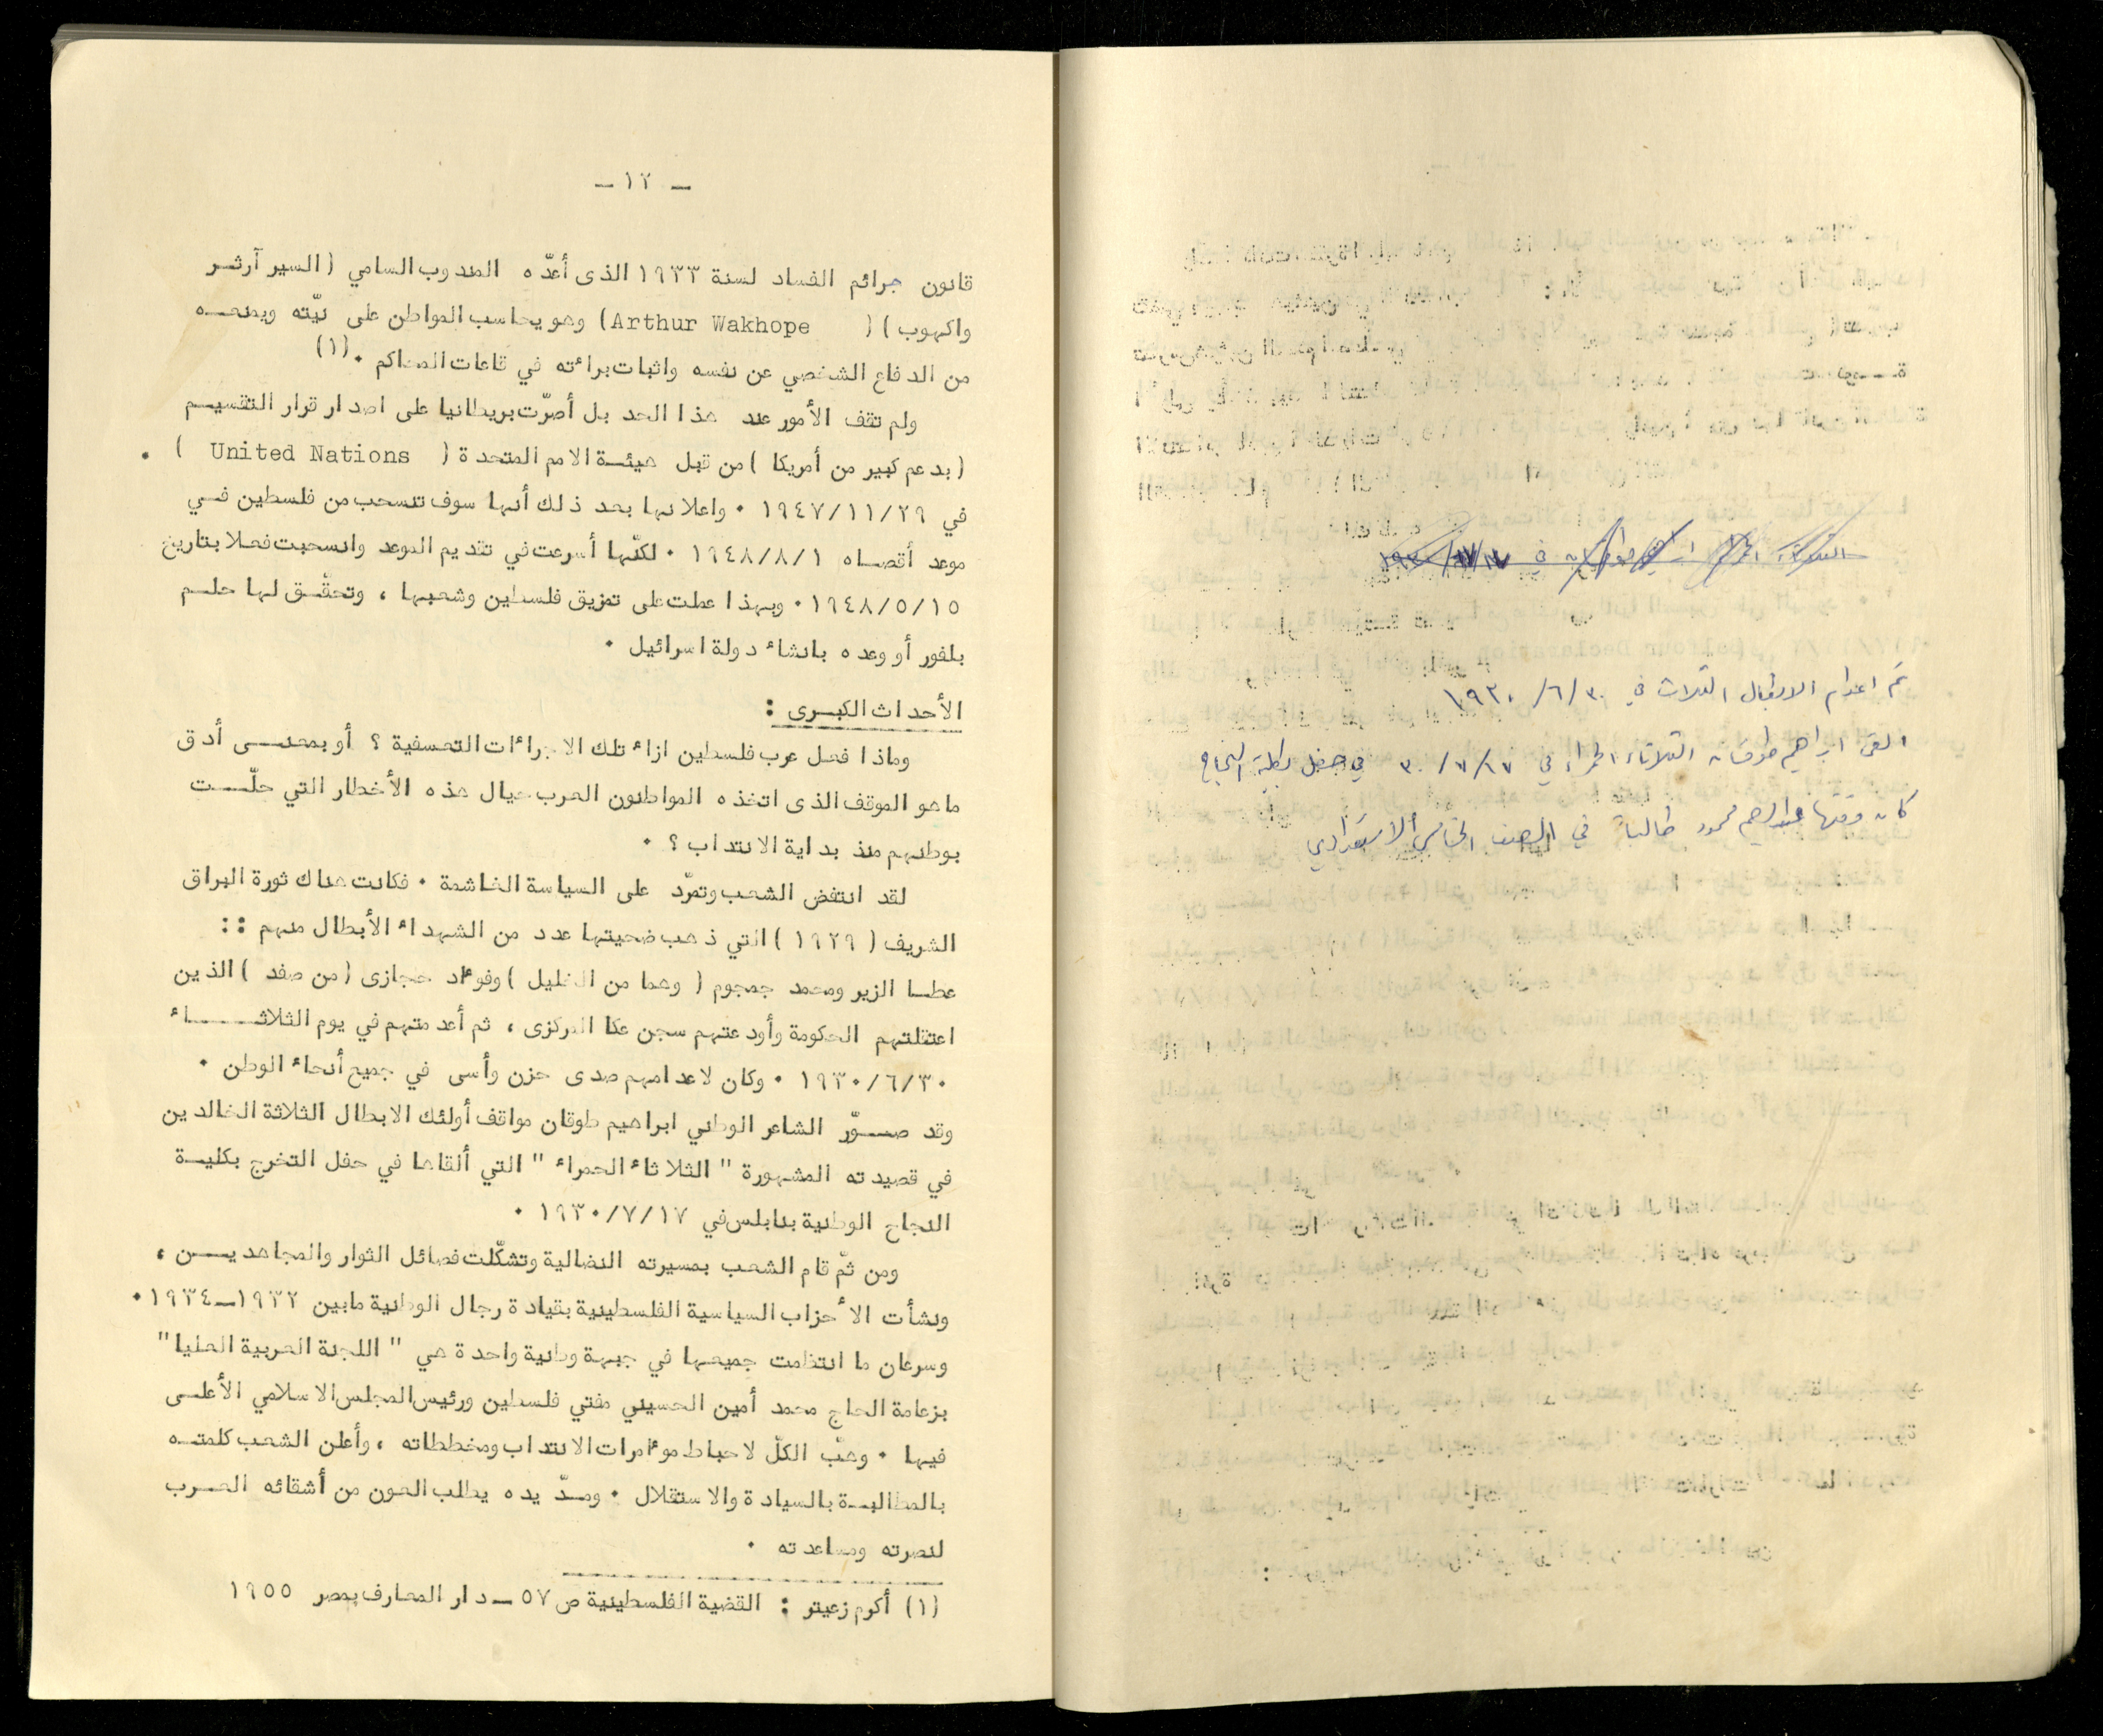 - ١٢ -
قانون جرائم الفساد لسنة ١٩٣٣ الذى أعدّه المندوب السامي ( السير آرثر
واكهوب ) ( Arthur Wakhope ) وهو يحاسب المواطن على نيّته ويمنعه
من الدفاع الشخصي عن نفسه واثبات براءته في قاعات المحاكم . (١)
ولم تقف الأمور عند هذا الحد بل أصرّت بريطانيا على اصدار قرار التقسيم
( بدعم كبير من أمريكا ) من قبل هيئة الامم المتحدة ( United Nations ) .
في ١٩٤٧/١١/٢٩ . واعلانها بعد ذلك أنها سوف تنسحب من فلسطين في
موعد أقصاه ١٩٤٨/٨/١ . لكنّها أسرعت في تقديم الموعد وانسحبت فعلا بتاريخ
١٩٤٨/٥/١٥ . وبهذا عملت على تمزيق فلسطين وشعبها ، وتحقّق لها حلم
بلفور أو وعده بانشاء دولة اسرائيل .
الأحداث الكبرى :
وماذا فعل عرب فلسطين ازاء تلك الاجراءات التعسفية ؟ أو بمعنى أدق
ما هو الموقف الذى اتخذه المواطنون العرب حيال هذه الأخطار التي حلّت
بوطنهم منذ بداية الانتداب ؟ .
لقد انتفض الشعب وتمرّد على السياسة الغاشمة . فكانت هناك ثورة البراق
الشريف ( ١٩٢٩ ) التي ذهب ضحيتها عدد من الشهداء الأبطال منهم ::
عطا الزير ومحمد جمجوم ( وهما من الخليل ) وفؤاد حجازى ( من صفد ) الذين
اعتقلتهم الحكومة وأودعتهم سجن عكا المركزى ، ثم أعدمتهم في يوم الثلاثاء
١٩٣٠/٦/٣٠ . وكان لاعدامهم صدى حزن وأسى في جميع أنحاء الوطن .
وقد صوّر الشاعر الوطني ابراهيم طوقان مواقف أولئك الابطال الثلاثة الخالدين
في قصيدته المشهورة " الثلاثاء الحمراء " التي ألقاها في حفل التخرج بكلية
النجاح الوطنية بنابلس في ١٩٣٠/٧/١٧ .
ومن ثمّ قام الشعب بمسيرته النضالية وتشكّلت فصائل الثوار والمجاهدين ،
ونشأت الأحزاب السياسية الفلسطينية بقيادة رجال الوطنية مابين ١٩٣٢-١٩٣٤ .
وسرعان ما انتظمت جميعها في جبهة وطنية واحدة هي " اللجنة العربية العليا "
بزعامة الحاج محمد أمين الحسيني مفتي فلسطين ورئيس المجلس الاسلامي الأعلى
فيها . وهبّ الكلّ لاحباط مؤامرات الانتداب ومخططاته ، وأعلن الشعب كلمته
بالمطالبة بالسيادة والاستقلال . ومدّ يده يطلب العون من أشقائه العرب
لنصرته ومساعدته .
(١) أكرم زعيتر : القضية الفلسطينية ص ٥٧ - دار المعارف بمصر ١٩٥٥
تم اعدام الابطال الثلاث في ١٩٣٠/٦/٣٠
القى ابراهيم طوقان الثلاثاء الحمراء في ٣٠/٧/١٧ في حفل بكلية النجاح
كان وقتها عبدالرحيم محمود طالباً في الصف الخامس الاستعدادي